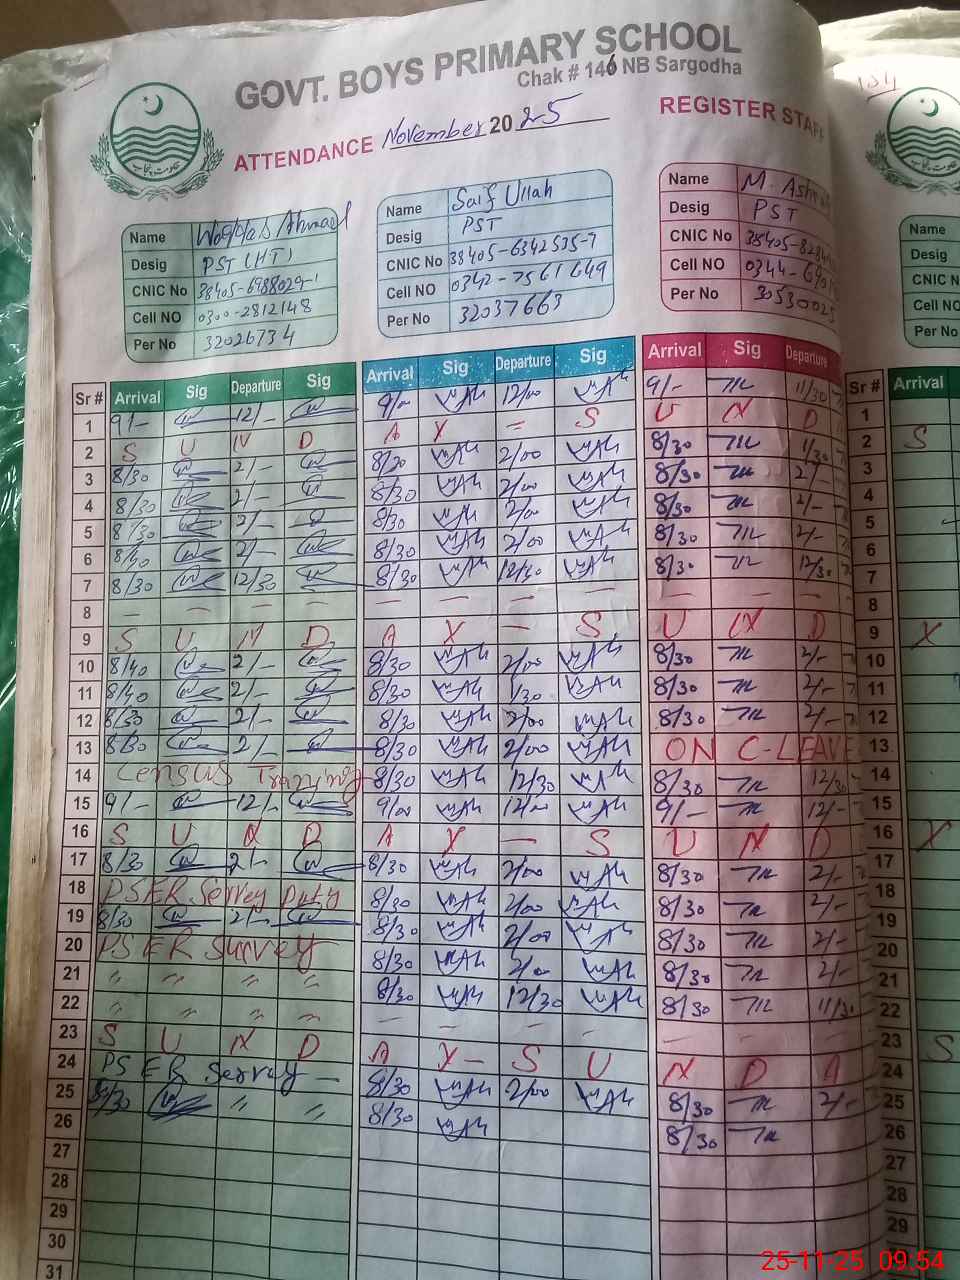 GOVT. BOYS PRIMARY SCHOOL
Chak # 146 NB Sargodha
ATTENDANCE November 2025 REGISTER STAFF
Name Waqas Ahmad
Desig PST (HT)
CNIC No 38405-6988029-1
Cell NO 0300-2812148
Per No 32026734
Name Saif Ullah
Desig PST
CNIC No 38405-6342535-7
Cell NO 0342-7561649
Per No 32037663
Name M. Ash
Desig PST
CNIC No 38405-828
Cell NO 0344-690
Per No 3053002
Name
Desig
CNIC N
Cell NO
Per No
Sr # Arrival Sig Departure Sig Arrival Sig Departure Sig Arrival Sig Departure Sr # Arrival
1 9/- 12/- 9/00 12/00 9/- 11/30 1
2 S U N D A Y - S U N D 2 S
3 8/30 2/- 8/30 2/00 8/30 1/30 3
4 8/30 2/- 8/30 2/00 8/30 2/- 4
5 8/30 2/- 8/30 2/00 8/30 2/- 5
6 8/40 2/- 8/30 2/00 8/30 2/- 6
7 8/30 12/30 8/30 12/30 8/30 12/30 7
8 — — — — — — — — — — 8
9 S U N D A Y — S U N D 9 Y
10 8/40 2/- 8/30 2/00 8/30 2/- 10
11 8/40 2/- 8/30 1/30 8/30 2/- 11
12 8/30 2/- 8/30 2/00 8/30 2/- 12
13 8/30 2/- 8/30 2/00 ON C-LEAVE 13
14 Census Training 8/30 12/30 8/30 12/30 14
15 9/- 12/- 9/00 12/00 9/- 12/- 15
16 S U N D A Y — S U N D 16 Y
17 8/30 2/- 8/30 2/00 8/30 2/- 17
18 PSER Servey Duty 8/30 2/00 8/30 2/- 18
19 8/30 2/- 8/30 2/00 8/30 2/- 19
20 PSER Survey 8/30 2/00 8/30 2/- 20
21 〃 〃 〃 〃 8/30 12/30 8/30 11/30 21
22 〃 〃 〃 〃 — — — — — — — 22
23 S U N D A Y — S U N D A 23 S
24 PSER Servey — 8/30 2/00 8/30 2/- 24
25 8/30 〃 〃 8/30 8/30 25
26 26
27 27
28 28
29 29
30
31
25-11-25 09:54